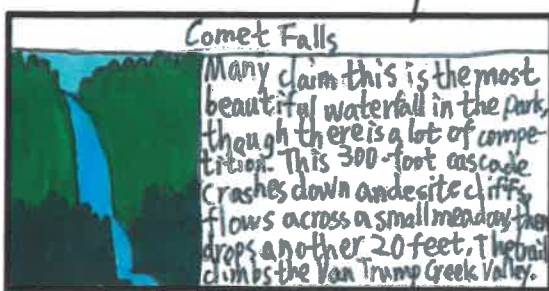 Comet Falls
Many claim this is the most
beautiful waterfall in the Park,
though there is a lot of compe-
tition. This 300-foot cascade
crashes down andesite cliffs,
flows across a small meadow, then
drops another 20 feet. The trail
climbs the Van Trump Creek Valley.